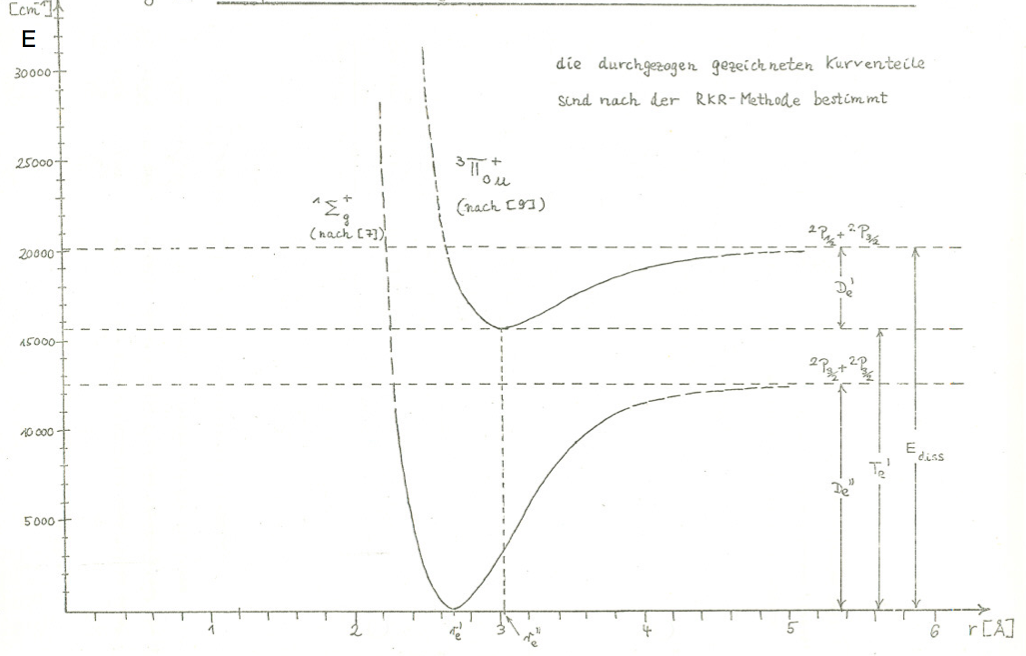 [cm⁻¹]
E
30000
25000
20000
15000
10000
5000
die durchgezogen gezeichneten Kurventeile
sind nach der RKR-Methode bestimmt
³Π⁺₀u
(nach [9])
¹Σ⁺g
(nach [7])
²P½ + ²P3/2
De'
²P3/2 + ²P3/2
De''
Te'
Ediss
1 2 3 4 5 6 r [Å]
re' re''